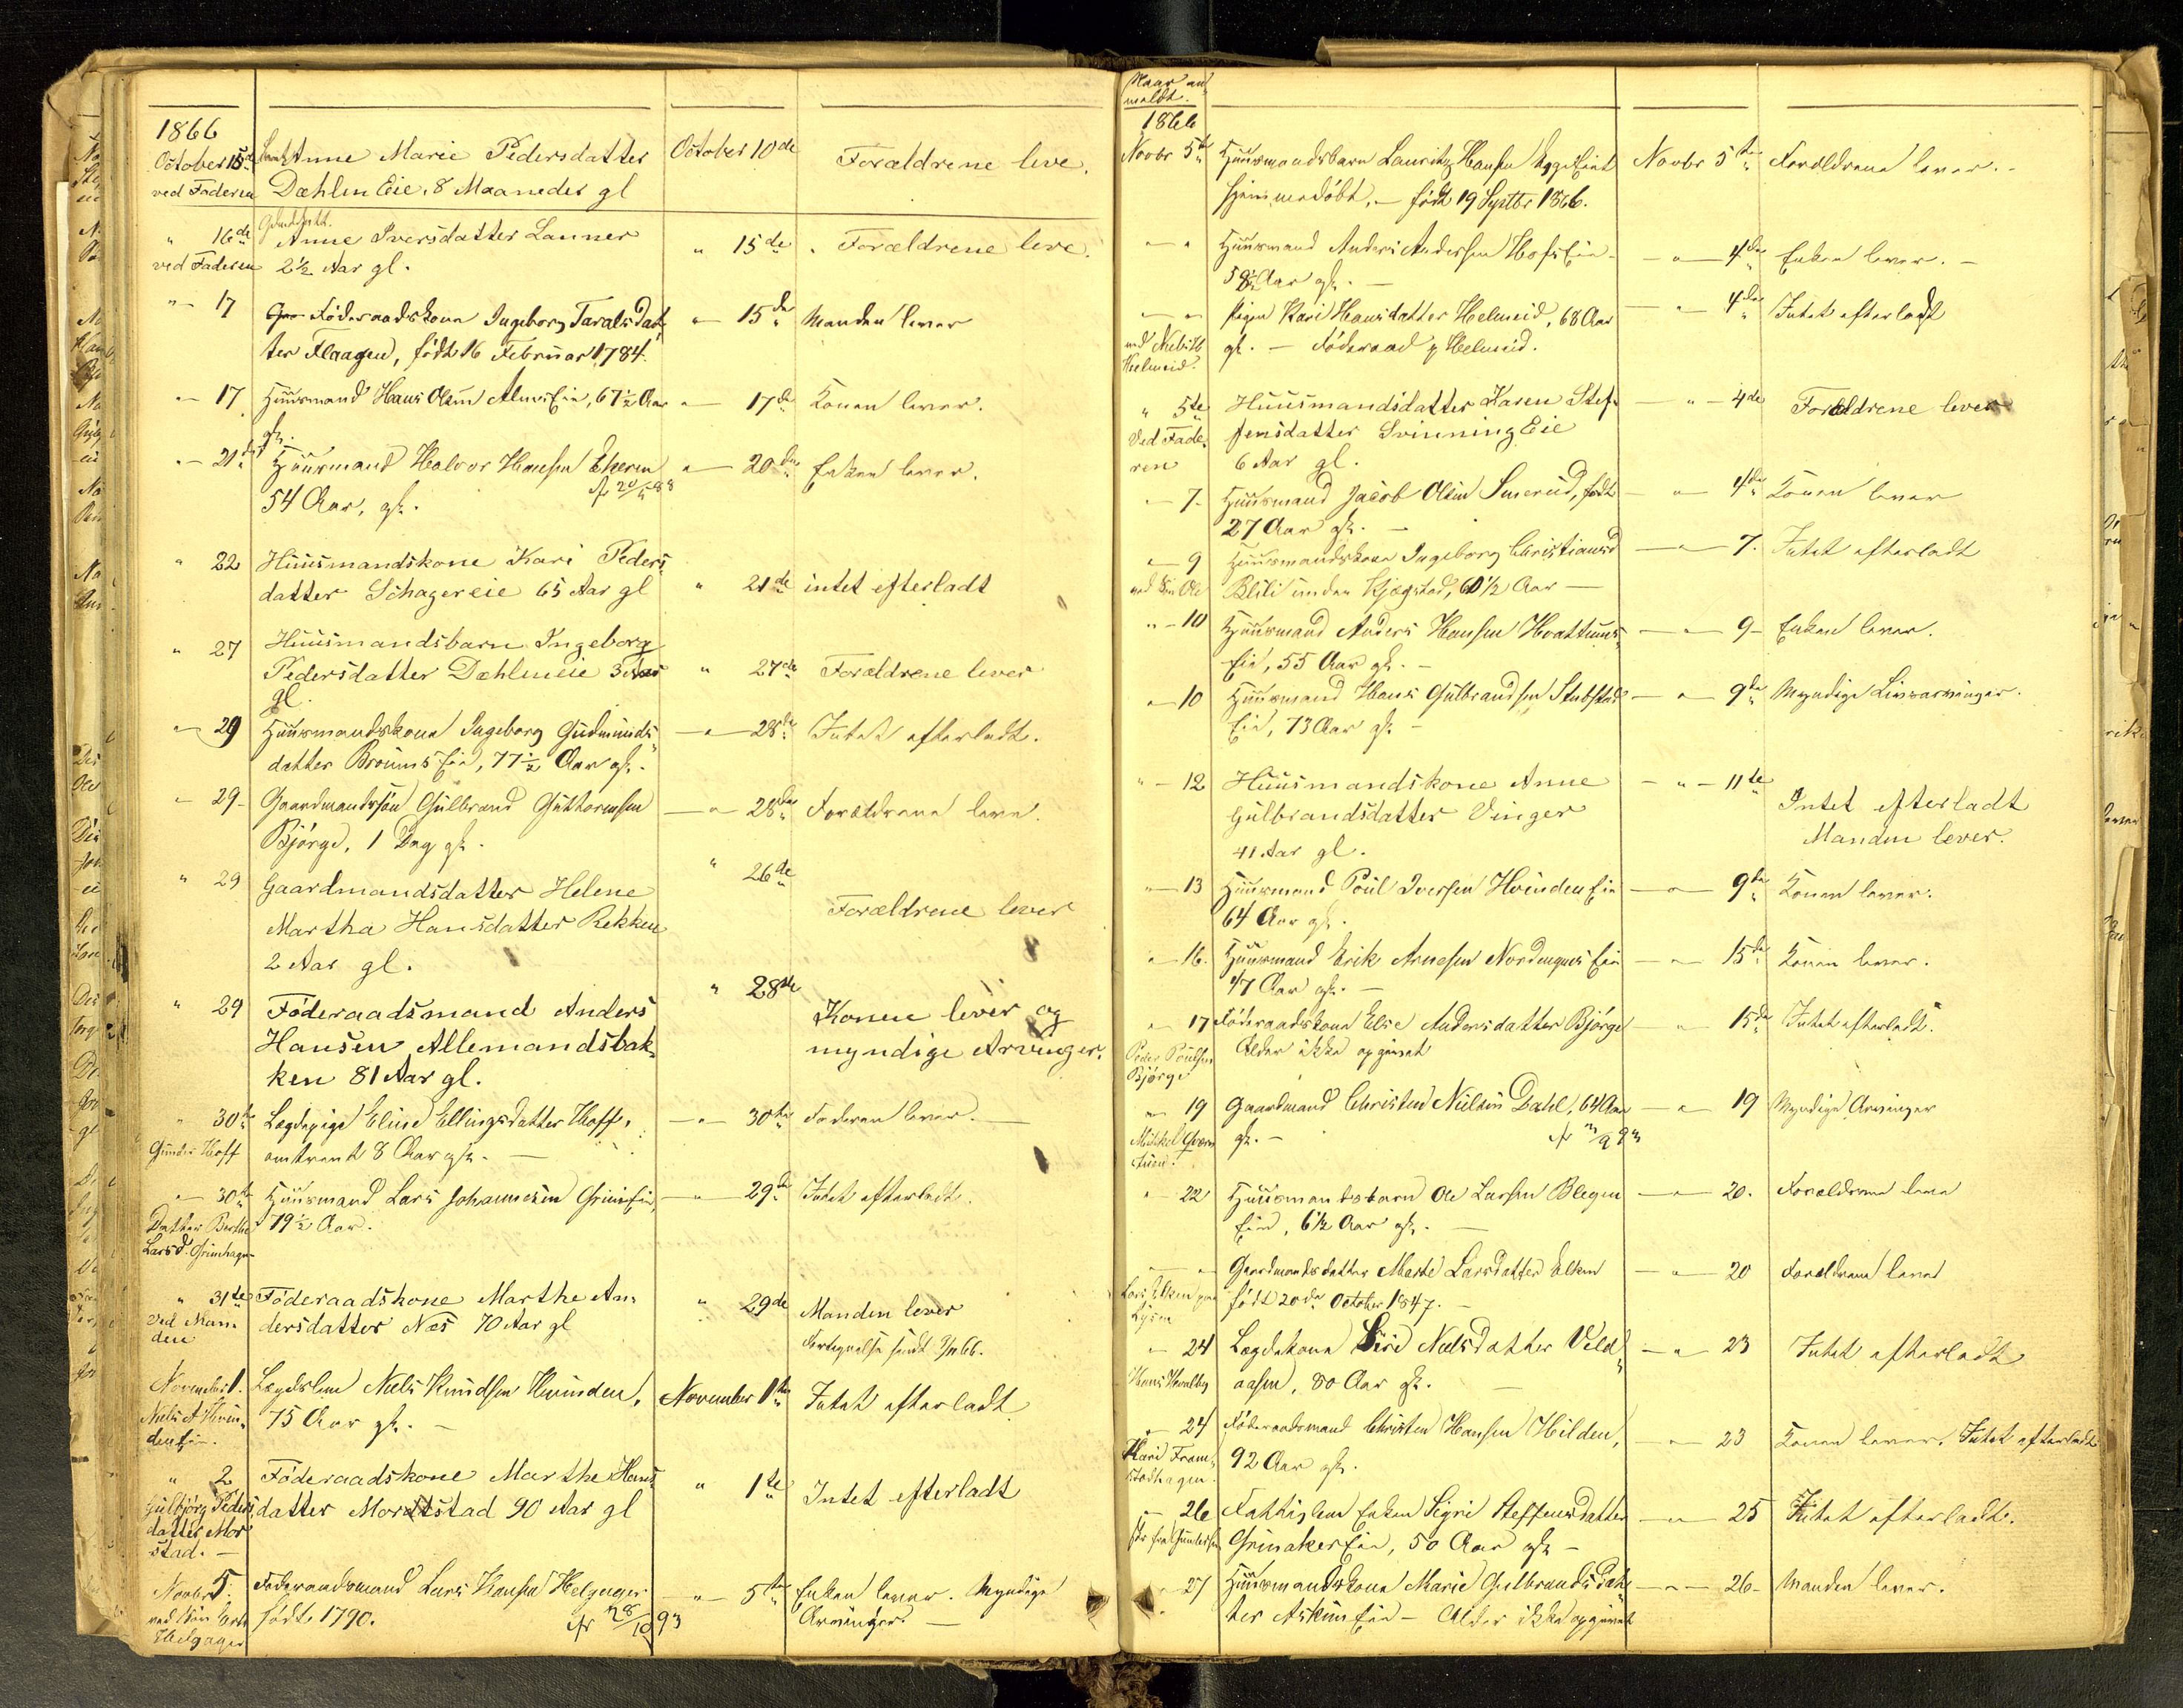 1866
October 15de Anne Marie Pedersdatter October 10de Forældrene leve.
ved Faderen Dæhlen Eie. 8 Maaneder gl
" 16de Anne Iversdatter Lanner " 15de Forældrene leve.
ved Faderen 2½ Aar gl.
" 17 Föderaadskone Ingeborg Taralsdat " 15de Manden lever
ter Flaagen, födt 16 Februar 1784.
" 17 Huusmand Hans Olsen Alm Eie, 67½ Aar " 17de Konen lever.
gl.
" 21de Huusmand Halvor Hansen Ekern " 20de Enken lever.
54 Aar, gl.
" 22 Huusmandskone Kari Peders
datter Schagereie 65 Aar gl " 21de intet efterladt
" 27 Huusmandsbarn Ingeborg
Pedersdatter Dæhleneie 3 Aar " 27de Forældrene lever
gl.
" 29 Huusmandskone Ingeborg Gudmunds " 28de Intet efterladt.
datter Brouns Eie, 77½ Aar gl.
" 29 Gaardmandssön Gulbrand Guttormsen " 28de Forældrene leve.
Björge, 1 Dag gl.
" 29 Gaardmandsdatter Helene " 26de
Martha Hansdatter Rekken Forældrene lever
2 Aar gl.
" 29 Föderaadsmand Anders " 28de Konen lever og
Hansen Allemandsbak myndige Arvinger.
ken 81 Aar gl.
" 30te Lægdepige Eline Ellingsdatter Hoff, " 30te Faderen lever.
Gunder Hoff omtrent 8 Aar gl.
" 30te Huusmand Lars Johannesen Eie, " 29de Intet efterladt.
Datter Berthe 79½ Aar.
Larsd. Grimhagen
" 31te Föderaadskone Marthe An " 29de Manden lever
Ved Man dersdatter Næs 70 Aar gl
den
November 1. Lægdslem Niels Knudsen Hvinden, November 1te Intet efterladt
Niels A Hvin 75 Aar gl.
den Eie.
" 2 Föderaadskone Marthe Hans " 1te Intet efterladt
Gulbjörg Peders datter Morstad 90 Aar gl
datter Mor
stad.
Novbr 5. Föderaadsmand Lars Hansen Helgager " 5te Enken lever. Myndige
ved Sön födt 1790. Arvinger.
Helgager
Naar an
meldt.
1866
Novbr 5te Huusmandsbarn Lauritz Hansen Novbr 5te Forældrene lever.
hjemmedöbt, födt 19 Septbr 1866.
" " Huusmand Anders Andersen Hofs Eie " 4de Enken lever.
58½ Aar gl.
" " Pigen Kari Hansdatter Helmeid, 68 Aar " 4de Intet efterladt
Helmeid. gl. Föderaad p Helmeid.
" 5te Huusmandsdatter Karen Stef " 4de Forældrene lever
Ved Fade fensdatter Svinning Eie
ren 6 Aar gl.
" 7. Huusmand Jacob Olsen Smerud, födt " 4de Konen lever
27 Aar gl.
" 9 Huusmandskone Ingeborg Christiansd " 7. Intet efterladt
Blili under Kjøgstad, 60½ Aar
" 10 Huusmand Anders Hansen Hvattums " 9 Enken lever.
Eie, 55 Aar gl.
" 10 Huusmand Hans Gulbrandsen Stubstad " 9de Myndige Livsarvinger.
Eie, 73 Aar gl.
" 12 Huusmandskone Anne " 11te
Gulbrandsdatter Vinger Intet efterladt
41 Aar gl. Manden lever.
" 13 Huusmand Poul Iversen Hvinden Eie " 9de Konen lever.
64 Aar gl.
" 16. Huusmand Erik Arnesen Nordengens Eie " 15de Konen lever.
47 Aar gl.
" 17 Föderaadskone Else Andersdatter Björge " 15de Intet efterladt.
Peder Poulsen Alder ikke opgivet
Björge
" 19 Gaardmand Christen Nielsen Dæhl, 64 Aar " 19 Myndige Arvinger
Mikkel gl.
" 22 Huusmandsbarn Ole Larsen Blegen " 20. Forældrene leve
Eie, 6½ Aar gl.
" " Gaardmandsdatter Marte Larsdatter Elken " 20 Forældrene lever
Lars Elken födt 20de October 1847.
" 24 Lægdekone Siri Nielsdatter Veld " 23 Intet efterladt
Hans aasen, 80 Aar gl.
" 24 Föderaadsmand Christen Hansen Hilden, " 23 Konen lever. Intet efterladt
Kari Fram 92 Aar gl.
stadhagen
" 26 Fattiglem Enken Sigri Steffensdatter " 25 Intet efterladt.
Grinaker Eie, 50 Aar gl
" 27 Huusmandskone Marie Gulbrandsdat " 26 Manden lever.
ter Askim Eie Alder ikke opgivet